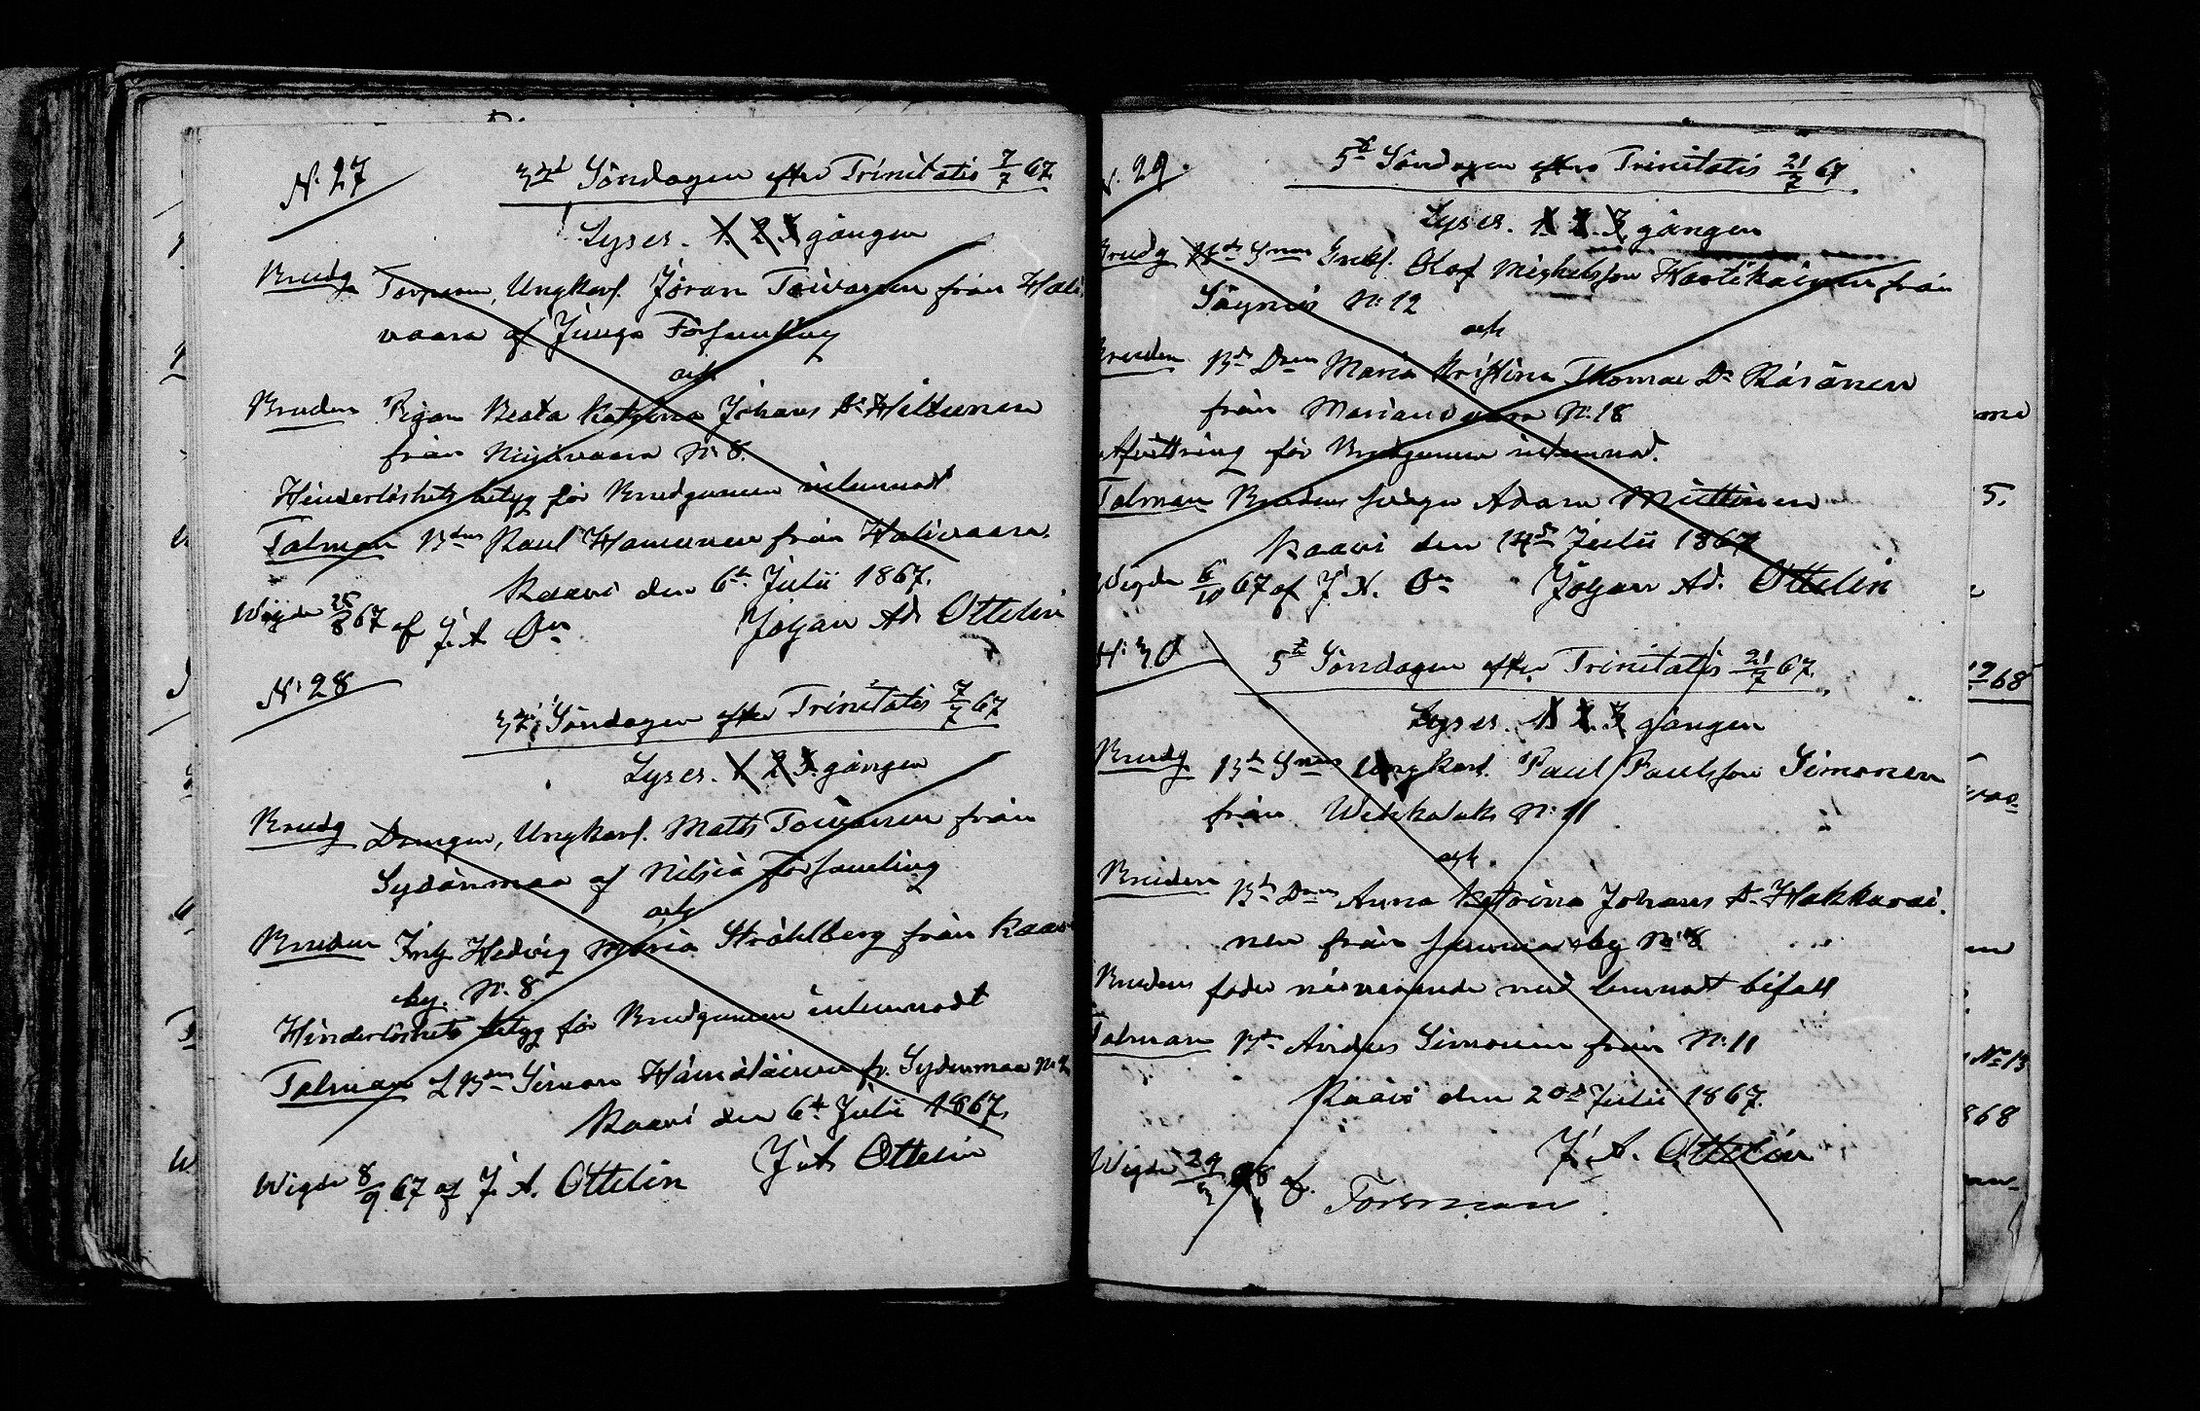 N. 27
3dj Söndagen efter Trinitatis 7/7 67
Lyses. 1. 2. 3 gången
Brudg Torparen, Ungkarl. Jöran Toivanen från Hali
vaara af Juuga Församling
och
Bruden Pigan Beata Katrina Johans Dr Hiltunen
från Niinivaara N. 8.
Hinderlöshets betyg för Brudgumen inlemnadt
Talman Bdn Paul Hamunen från Halivaara.
Kaavi den 6te Julii 1867.
Wigde 25/8 67 af J. A On
Johan Ad. Ottelin
N. 28
3dj Söndagen efter Trinitatis 7/7 67
Lyses. 1. 2. 3. gången
Brudg Drängen, Ungkarl. Matts Toivanen från
Sydänmaa af Nilsiä Församling
och
Bruden Hedvig Maria Stråhlberg från Kaavi
by. N. 8
Hinderlöshets betyg för Brudgumen inlemnadt
Talman Simon Hämäläinen fr. Sydenmaa
Kaavi den 6te Julii 1867.
J. A. Ottelin
Wigde 8/9 67 af J. A. Ottelin
N. 29.
5te Söndagen efter Trinitatis 21/7 67
Lyses. 1. 2. 3. gången
Brudg Bds Snen Enkl. Olof Michelsson Hartikainen från
Säynäs N. 12
och
Bruden Bds Dren Maria Kristina Thomae Dr Räsänen
från Mariansvaara N. 18
Afvittring för Brudgumen inlemnad.
Talman Brudens svåger Adam Miettinen
Kaavi den 14de Julii 1867
Wigde 6/10 67 af J. A. On
Johan Ad. Ottelin
N. 30
5te Söndagen efter Trinitatis 21/7 67.
Lyses. 1. 2. 3. gången
Brudg Bds Snen Ungkarl. Paul Paulsson Simonen
från N. 11
och
Bruden Bds Dren Anna Katrina Johans Dr Hakkarai
nen från by N. 8
Brudens fader närvarande med lemnadt bifall
Talman Bdn Anders Simonen från N. 11
Kaavi den 20de Julii 1867.
J. A. Ottelin
Wigde 29/3 68 af Forsman
5.
68
N 13
868